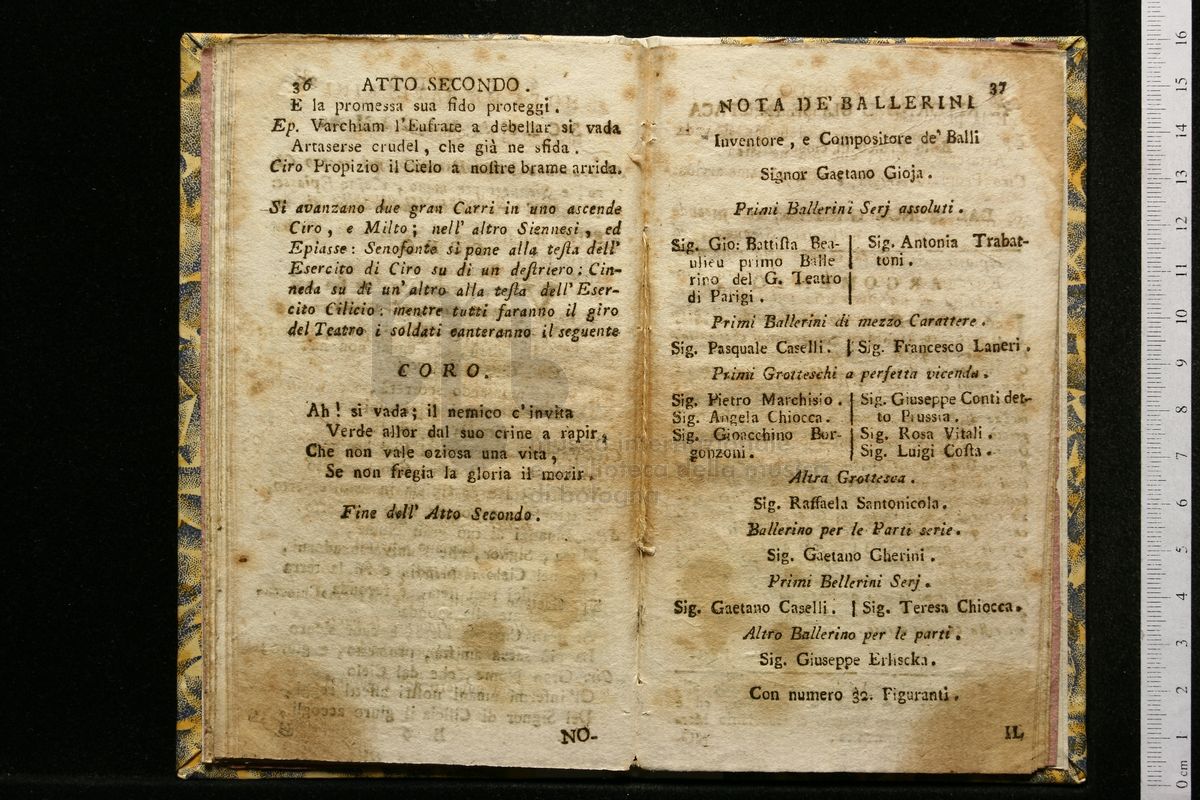 36 ATTO SECONDO.
E la promessa sua fido proteggi.
Ep. Varchiam l'Eufrate a debellar si vada
Artaserse crudel, che già ne sfida.
Ciro Propizio il Cielo a nostre brame arrida.
Si avanzano due gran Carri in uno ascende
Ciro, e Milto; nell' altro Siennesi, ed
Epiasse: Senofonte si pone alla testa dell'
Esercito di Ciro su di un destriero: Cin-
neda su di un' altro alla testa dell' Eser-
cito Cilicio: mentre tutti faranno il giro
del Teatro i soldati canteranno il seguente
CORO.
Ah! si vada; il nemico c'invita
Verde allor dal suo crine a rapir,
Che non vale oziosa una vita,
Se non fregia la gloria il morir.
Fine dell' Atto Secondo.
NO-
37
NOTA DE' BALLERINI
Inventore, e Compositore de' Balli
Signor Gaetano Gioja.
Primi Ballerini Serj assoluti.
Sig. Gio: Battista Bea-
ulieu primo Balle
rino del G. Teatro
di Parigi.
Sig. Antonia Trabat-
toni.
Primi Ballerini di mezzo Carattere.
Sig. Pasquale Caselli. | Sig. Francesco Laneri.
Primi Grotteschi a perfetta vicenda.
Sig. Pietro Marchisio.
Sig. Angela Chiocca.
Sig. Gioacchino Bor-
gonzoni.
Sig. Giuseppe Conti det-
to Prussia.
Sig. Rosa Vitali.
Sig. Luigi Costa.
Altra Grottesca.
Sig. Raffaela Santonicola.
Ballerino per le Parti serie.
Sig. Gaetano Gherini.
Primi Bellerini Serj.
Sig. Gaetano Caselli. | Sig. Teresa Chiocca.
Altro Ballerino per le parti.
Sig. Giuseppe Erliscka.
Con numero 32. Figuranti.
IL